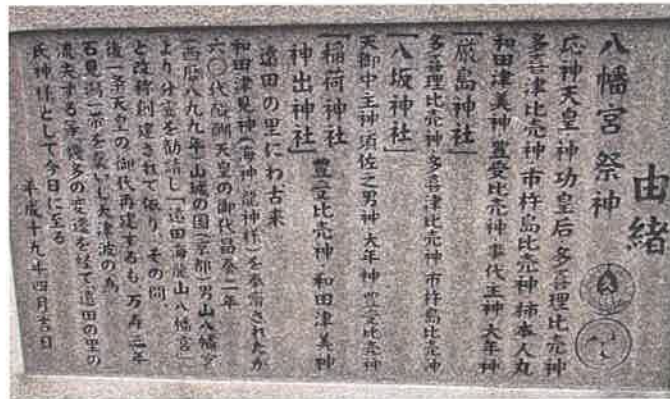 由緒
八幡宮祭神
応神天皇 神功皇后 多喜理比売神
多喜津比売神 市杵島比売神 柿本人丸
和田津美神 豊受比売神 事代主神 大年神
「厳島神社」
多喜理比売神 多喜津比売神 市杵島比売神
「八坂神社」
天御中主神 須佐之男神 大年神 豊受比売神
「稲荷神社」
神出神社 豊受比売神 和田津美神
遠田の里にわ古来
和田津見神(海神 龍神様)を奉斎されたが
六〇代醍醐天皇の御代昌泰二年
(西暦八九九年)山城の国(京都)男山八幡宮
より分霊を勧請し「遠田海龍山八幡宮」
と改称創建されて依り、その間、
後一条天皇の御代再建するも万寿三年
石見潟一帯を襲いし大津波の為
流失する等幾多の変遷を経て遠田の里の
氏神様として今日に至る
平成十九年四月吉日